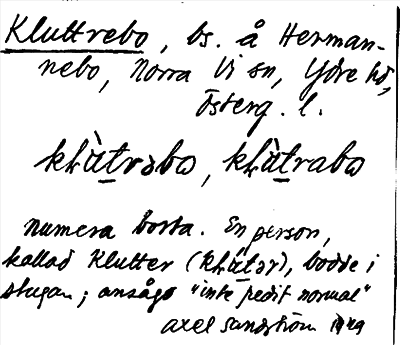 Kluttrebo, bs. å Herman-
nebo, Norra Vi sn, Ydre hd,
Österg. l.
kḷùtrəbω, kḷùtrabω
numera borta. En person,
kallad Klutter (kḷùtər), bodde i
stugan; ansågs "inte redit normal"
Axel Sandström